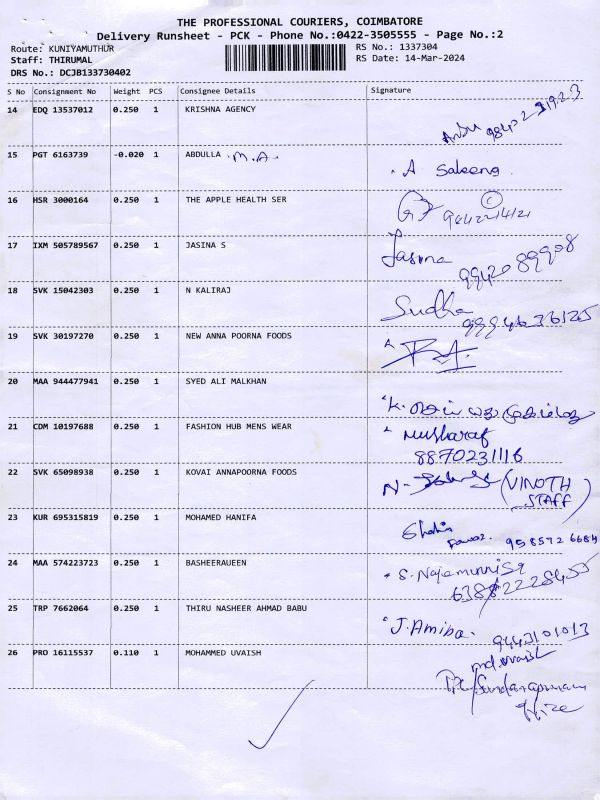 THE PROFESSIONAL COURIERS, COIMBATORE
Delivery Runsheet - PCK - Phone No.:0422-3505555 - Page No.:2
Route: KUNIYAMUTHUR
RS No.: 1337304
Staff: THIRUMAL
RS Date: 14-Mar-2024
DRS No.: DCJB133730402
S No Consignment No Weight PCS Consignee Details Signature
14 EDQ 13537012 0.250 1 KRISHNA AGENCY
15 PGT 6163739 -0.020 1 ABDULLA M.A. A Saleena
16 HSR 3000164 0.250 1 THE APPLE HEALTH SER
17 IXM 505789567 0.250 1 JASINA S Jasina
9942089908
18 SVK 15042303 0.250 1 N KALIRAJ Sudha
9994636125
19 SVK 30197270 0.250 1 NEW ANNA POORNA FOODS
20 MAA 944477941 0.250 1 SYED ALI MALKHAN
21 CDM 10197688 0.250 1 FASHION HUB MENS WEAR Musharaf
8870231116
22 SVK 65098938 0.250 1 KOVAI ANNAPOORNA FOODS (VINOTH
STAFF)
23 KUR 695315819 0.250 1 MOHAMED HANIFA
9585726684
24 MAA 574223723 0.250 1 BASHEERAUEEN S. Najamunnisa
25 TRP 7662064 0.250 1 THIRU NASHEER AHMAD BABU J. Amiba.
9443101013
26 PRO 16115537 0.110 1 MOHAMMED UVAISH md.uvaish